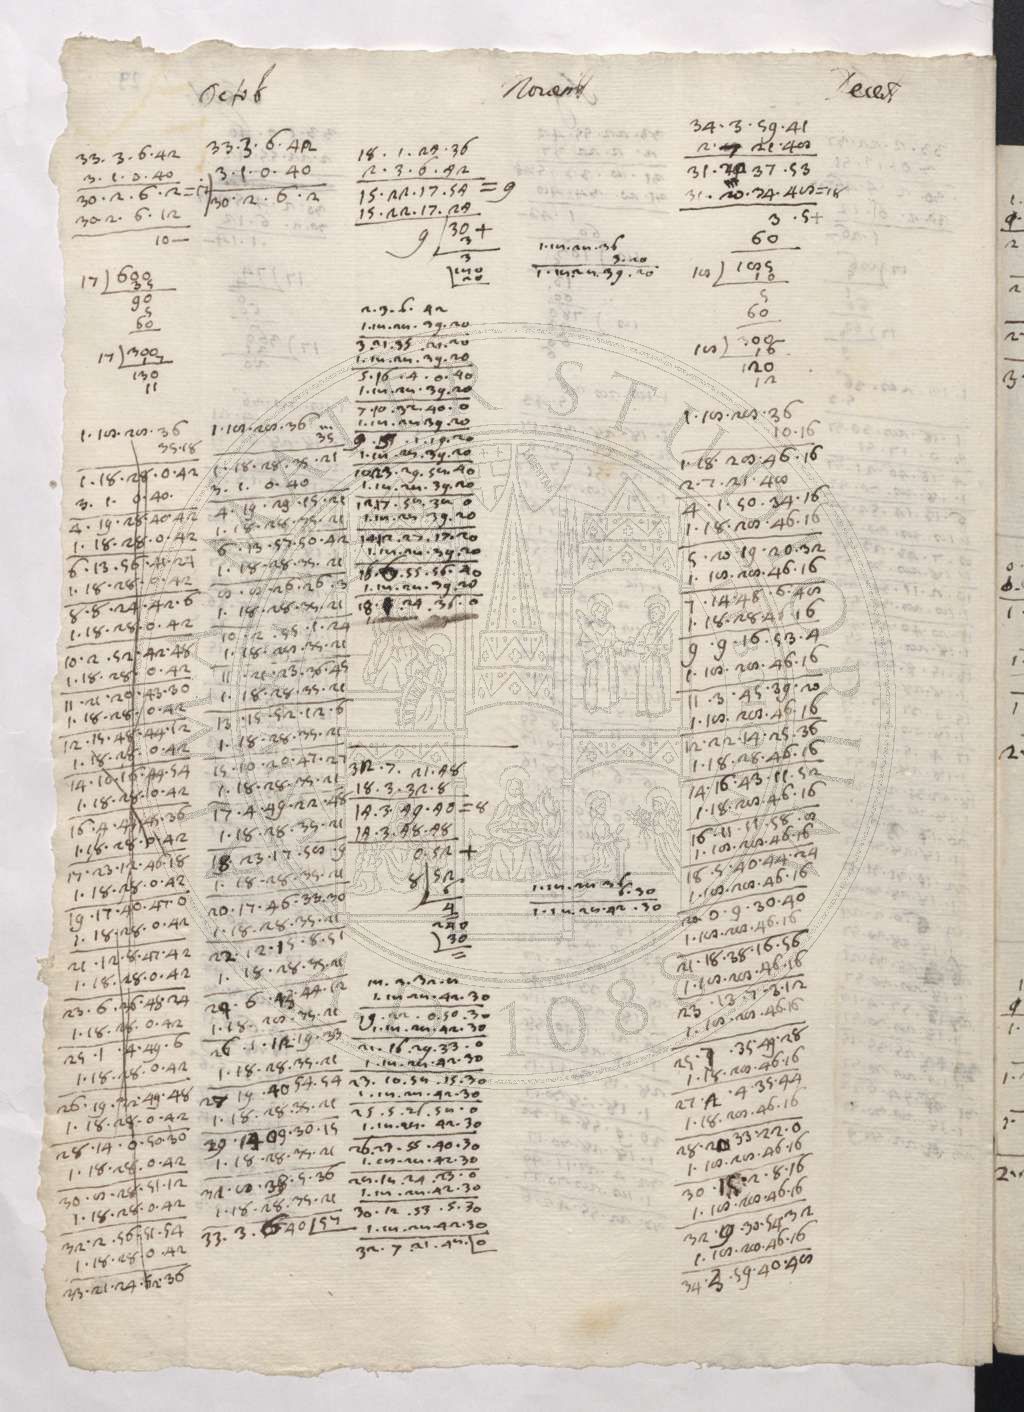 Octob
33.3.6.42
3.1.0.40
30.2.6.2=17
30.2.6.12
10—
17)600
35
90
5
60
17)300
130
11
1.18.28.36
35.18
1.18.28.0.42
3.1.0.40.
4.19.28.40.42
1.18.28.0.42
6.13.56.41.24
1.18.28.0.42
8.8.24.42.6
1.18.28.0.42
10.2.52.42.48
1.18.28.0.42
11.21.20.43.30
1.18.28.0.42
12.15.48.44.12
1.18.28.0.42
14.10.16.44.54
1.18.28.0.42
16.4.44.45.36
1.18.28.0.42
17.23.12.46.18
1.18.28.0.42
19.17.40.47.0
1.18.28.0.42
21.12.8.47.42
1.18.28.0.42
23.6.36.48.24
1.18.28.0.42
25.1.4.49.6
1.18.28.0.42
26.19.32.49.48
1.18.28.0.42
28.14.0.50.30
1.18.28.0.42
30.8.28.51.12
1.18.28.0.42
32.2.56.51.54
1.18.28.0.42
33.21.24.52.36
33.3.6.42
3.1.0.40
30.2.6.2
1.18.28.36
35
1.18.28.35.21
3.1.0.40
4.19.29.15.21
1.18.28.35.21
6.13.57.50.42
1.18.28.35.21
8.8.26.26.3
1.18.28.35.21
10.2.55.1.24
1.18.28.35.21
11.21.23.36.45
1.18.28.35.21
13.15.52.12.6
1.18.28.35.21
15.10.20.47.27
1.18.28.35.21
17.4.49.22.48
1.18.28.35.21
18.23.17.58.9
1.18.28.35.21
20.17.46.33.30
1.18.28.35.21
22.12.15.8.51
1.18.28.35.21
24.6.43.44.12
1.18.28.35.21
26.1.12.19.33
1.18.28.35.21
27.19.40.54.54
1.18.28.35.21
29.14.09.30.15
1.18.28.35.21
31.8.38.5.36
1.18.28.35.21
33.3.6.40|57
Novemb
18.1.29.36
2.3.6.42
15.22.17.54=9
15.22.17.24
9|30+
3
3
240
20
1.14.24.36
3.20
1.14.24.39.20
2.3.6.42
1.14.24.39.20
3.21.35.21.20
1.14.24.39.20
5.16.4.0.40
1.14.24.39.20
7.10.32.40.0
1.14.24.39.20
9.5.1.19.20
1.14.24.39.20
10.23.29.58.40
1.14.24.39.20
12.17.58.38.0
1.14.24.39.20
14.12.27.17.20
1.14.24.39.20
16.6.55.56.40
1.14.24.39.20
18.1.24.36.0
32.7.21.48
18.3.32.8
14.3.49.40=8
14.3.48.48
0.52+
8|52
6
4
240
30
1.14.24.36
6.30
1.14.24.42.30
1.14.24.42.30
19.22.0.50.30
1.14.24.42.30
21.16.29.33.0
1.14.24.42.30
23.10.58.15.30
1.14.24.42.30
25.5.26.58.0
1.14.24.42.30
26.23.55.40.30
1.14.24.42.30
28.18.24.23.0
1.14.24.42.30
30.12.53.5.30
1.14.24.42.30
32.7.21.48.|0
Decemb
34.3.59.41
2.7.21.48
31.20.37.53
31.20.34.48=18
3.5+
60
18|185
18
5
60
18|300
18
120
12
1.18.28.36
10.16
1.18.28.46.16
2.7.21.48
4.1.50.34.16
1.18.28.46.16
5.20.19.20.32
1.18.28.46.16
7.14.48.6.48
1.18.28.46.16
9.9.16.53.4
1.18.28.46.16
11.3.45.39.20
1.18.28.46.16
12.22.14.25.36
1.18.28.46.16
14.16.43.11.52
1.18.28.46.16
16.11.11.58.8
1.18.28.46.16
18.5.40.44.24
1.18.28.46.16
20.0.9.30.40
1.18.28.46.16
21.18.38.16.56
1.18.28.46.16
23.13.7.3.12
1.18.28.46.16
25.7.35.49.28
1.18.28.46.16
27.2.4.35.44
1.18.28.46.16
28.20.33.22.0
1.18.28.46.16
30.15.2.8.16
1.18.28.46.16
32.9.30.54.32
1.18.28.46.16
34.3.59.40.48